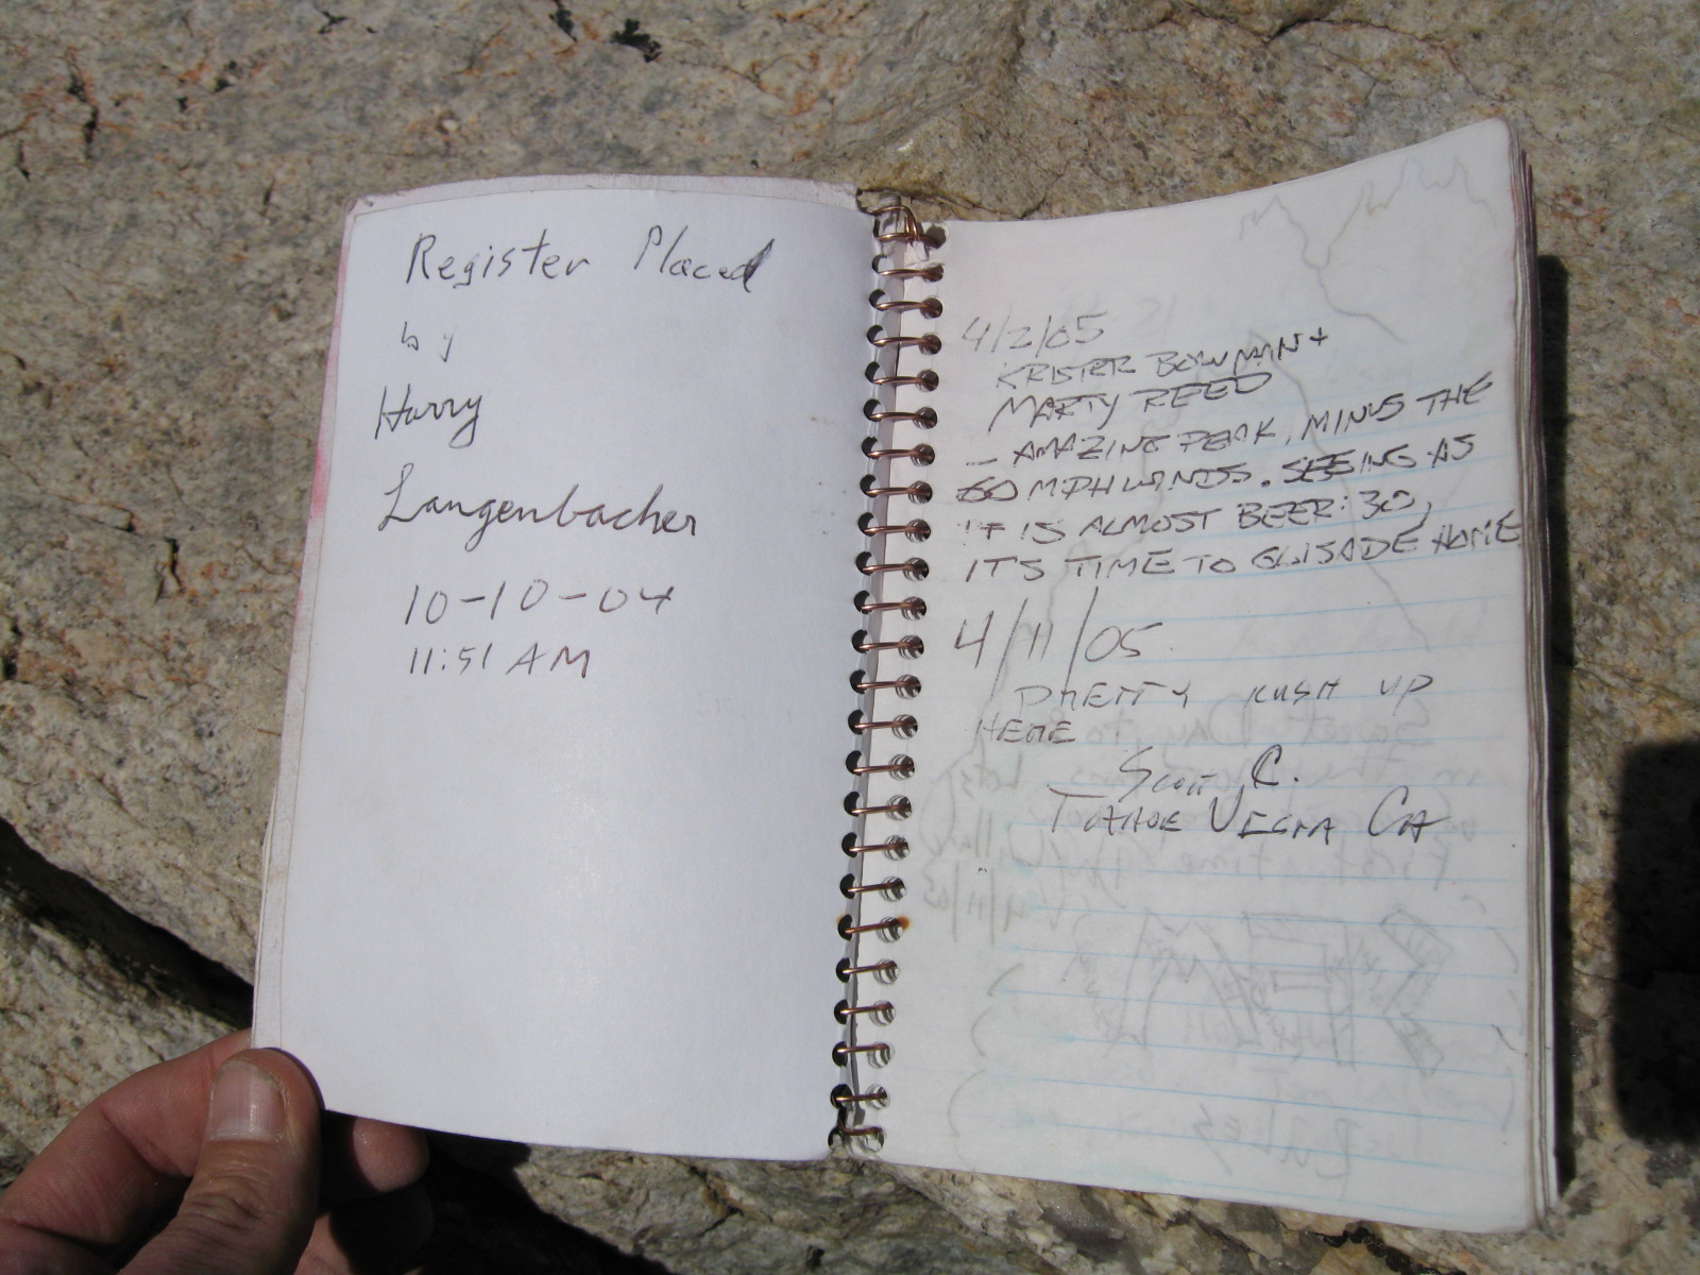 Register Placed
by
Harry
Langenbacher
10-10-04
11:51 AM
4/2/05
KRISTER BOWMAN +
MARTY REED
- AMAZING PEAK, MINUS THE
60 MPH WINDS. SEEING AS
IT IS ALMOST BEER:30,
IT'S TIME TO GLISADE HOME
4/11/05
PRETTY KUSH UP
HERE
Scott C.
TAHOE VISTA CA